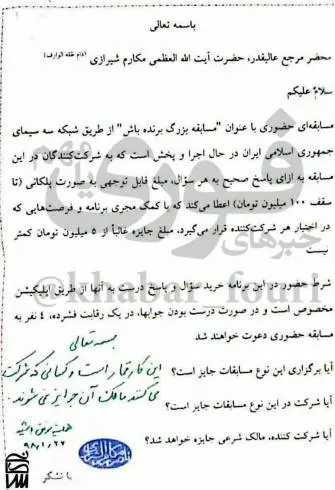 باسمه تعالی
محضر مرجع عالیقدر، حضرت آیت الله العظمی مکارم شیرازی (دام ظله الوارف)
سلامٌ علیکم
مسابقه‌ای حضوری با عنوان "مسابقه بزرگ برنده باش" از طریق شبکه سه سیمای
جمهوری اسلامی ایران در حال اجرا و پخش است که به شرکت‌کنندگان در این
مسابقه به ازای پاسخ صحیح به هر سؤال، مبلغ قابل توجهی به صورت پلکانی (تا
سقف ۱۰۰ میلیون تومان) اعطا می‌کند که با کمک مجری برنامه و فرصت‌هایی که
در اختیار هر شرکت‌کننده قرار می‌گیرد، مبلغ جایزه غالباً از ۵ میلیون تومان کمتر
نیست
شرط حضور در این برنامه خرید سؤال و پاسخ درست به آنها از طریق اپلیکیشن
مخصوص است و در صورت درست بودن جوابها، در یک رقابت فشرده، ۴ نفر به
مسابقه حضوری دعوت خواهند شد
بسمه تعالی
آیا برگزاری این نوع مسابقات جایز است؟
این کار قمار است و کسانی که شرکت
می کنند مالک آن جوایز نمی شوند
آیا شرکت در این نوع مسابقات جایز است؟
همیشه موفق باشید
۹۸/۱/۲۲
آیا شرکت کننده، مالک شرعی جایزه خواهد شد؟
با تشکر
خبرهای فوری مهم
@khabar_fouri